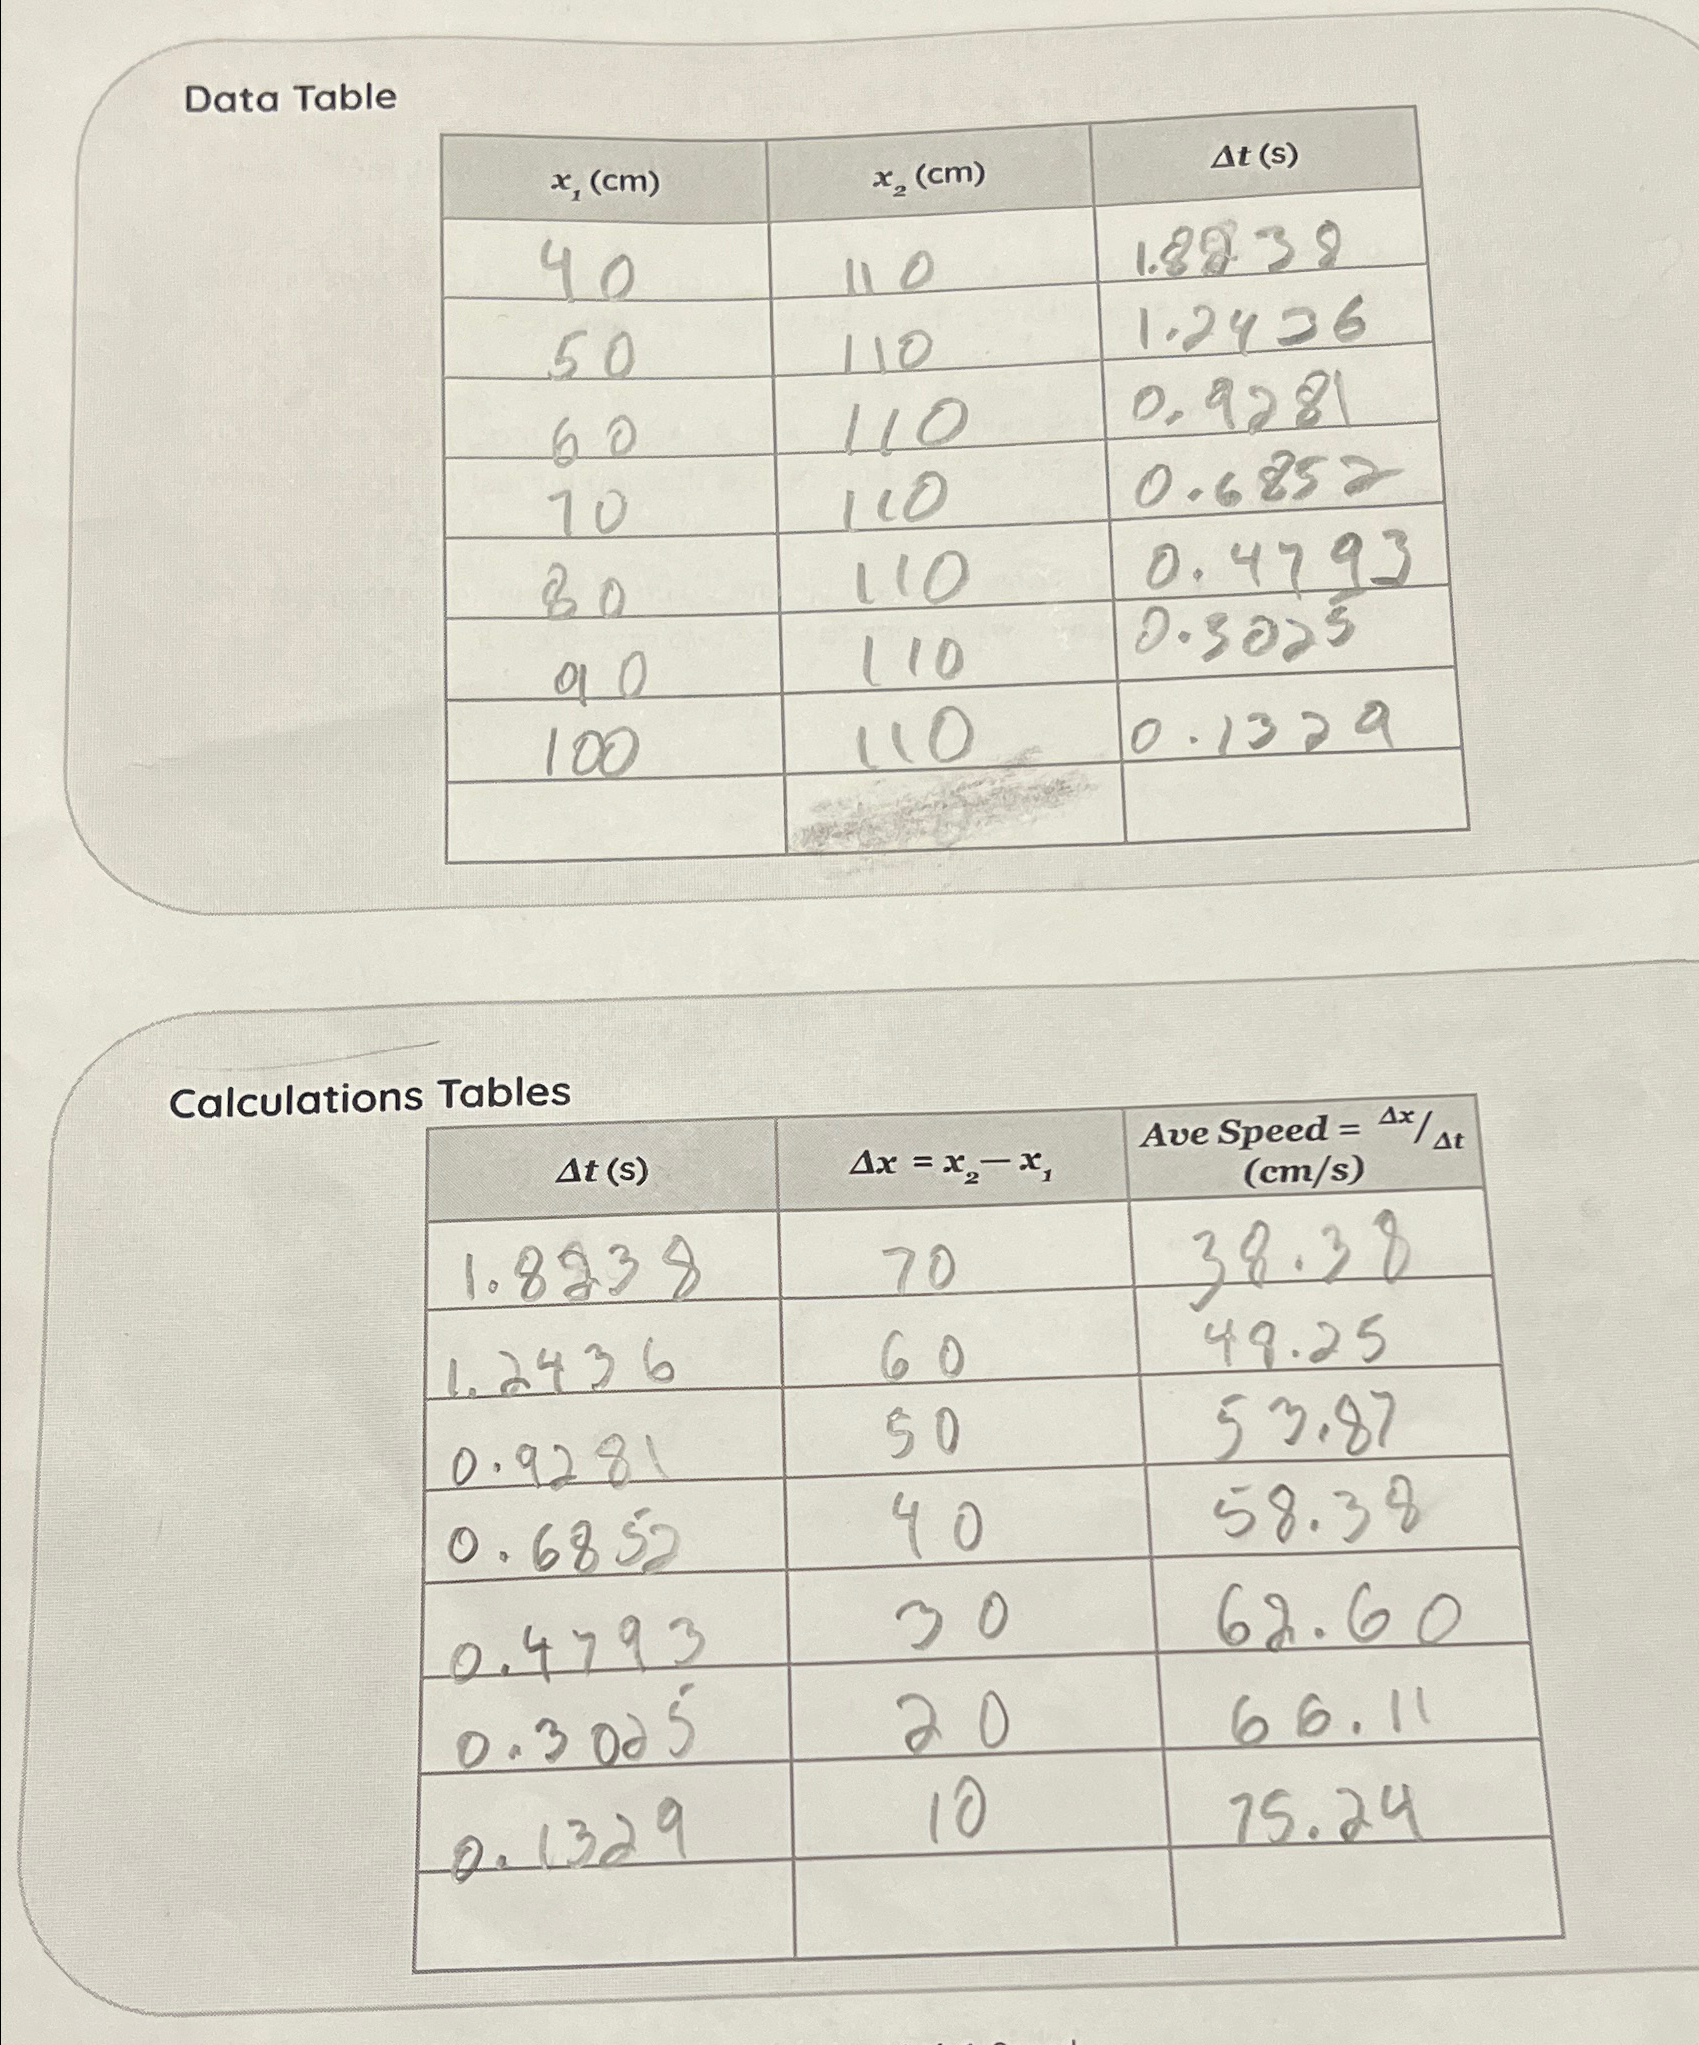 Data Table
x₁ (cm) x₂ (cm) Δt (s)
40 110 1.8238
50 110 1.2436
60 110 0.9281
70 110 0.6852
80 110 0.4793
90 110 0.3025
100 110 0.1329
Calculations Tables
Δt (s) Δx = x₂ — x₁ Ave Speed = Δx/Δt (cm/s)
1.8238 70 38.38
1.2436 60 48.25
0.9281 50 53.87
0.6852 40 58.38
0.4793 30 62.60
0.3025 20 66.11
0.1329 10 75.24